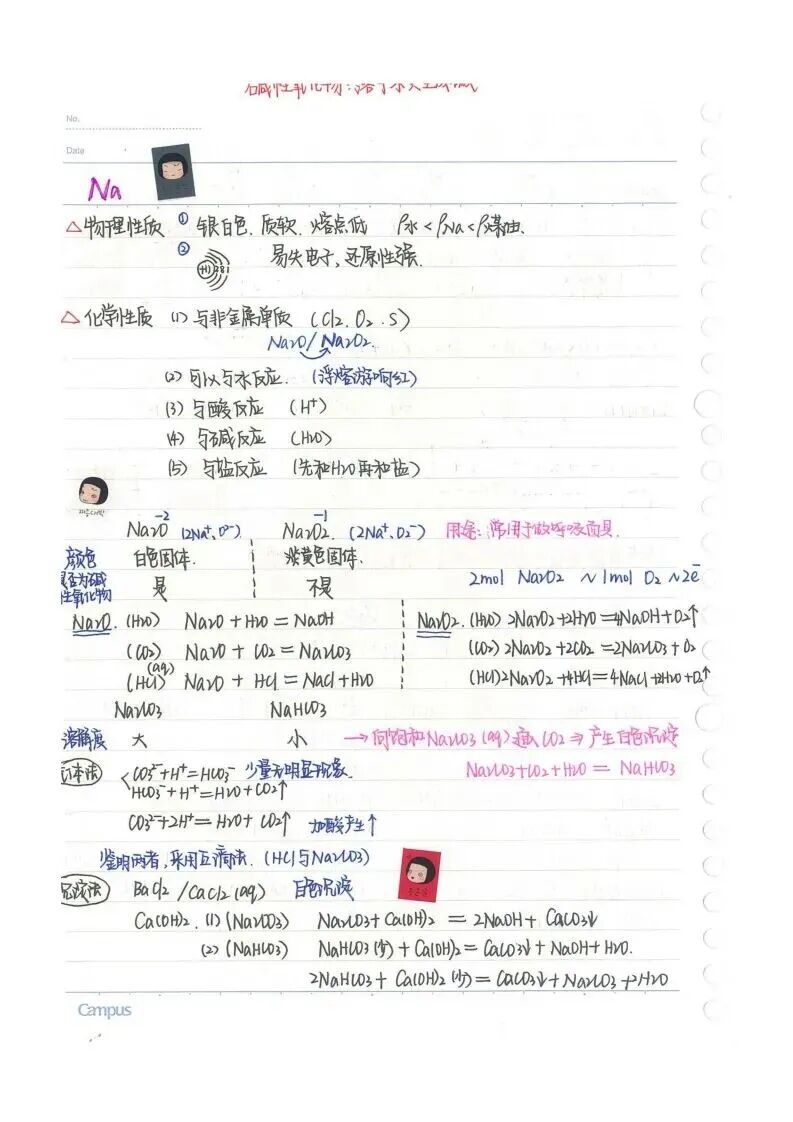 碱性氧化物:溶于水生成碱
No.
Date
Na
△物理性质 ① 银白色.质软.熔点低 ρ水<ρNa<ρ煤油.
② +11 2 8 1 易失电子,还原性强.
△化学性质 (1) 与非金属单质 (Cl2.O2.S)
Na2O/Na2O2.
(2) 与以与水反应. (浮熔游响红)
(3) 与酸反应 (H+)
(4) 与碱反应 (H2O)
(5) 与盐反应 (先和H2O再和盐)
Na2O -2 (2Na+、O2-) Na2O2 -1 (2Na+、O2-) 用途:常用于做呼吸面具.
颜色 白色固体. 淡黄色固体.
是否为碱性氧化物 是 不是 2mol Na2O2 ~ 1mol O2 ~ 2e-
Na2O. (H2O) Na2O + H2O = NaOH Na2O2. (H2O) 2Na2O2+2H2O=4NaOH+O2↑
(CO2) Na2O + CO2 = Na2CO3 (CO2) 2Na2O2+2CO2=2Na2CO3+O2
(aq)
(HCl) Na2O + HCl = NaCl+H2O (HCl) 2Na2O2+4HCl=4NaCl+2H2O+O2↑
Na2CO3 NaHCO3
溶解度 大 小 →向饱和Na2CO3(aq)通入CO2⇒产生白色沉淀
CO3²-+H+=HCO3- 少量无明显现象. Na2CO3+CO2+H2O = NaHCO3
气体法 HCO3-+H+=H2O+CO2↑
CO3²-+2H+=H2O+CO2↑ 加酸产生↑
鉴明两者,采用互滴法.(HCl与Na2CO3)
沉淀法 BaCl2/CaCl2(aq) 白色沉淀
Ca(OH)2. (1) (Na2CO3) Na2CO3+Ca(OH)2 = 2NaOH+CaCO3↓
(2) (NaHCO3) NaHCO3(少)+Ca(OH)2=CaCO3↓+NaOH+H2O.
2NaHCO3+Ca(OH)2(少)=CaCO3↓+Na2CO3+2H2O
Campus